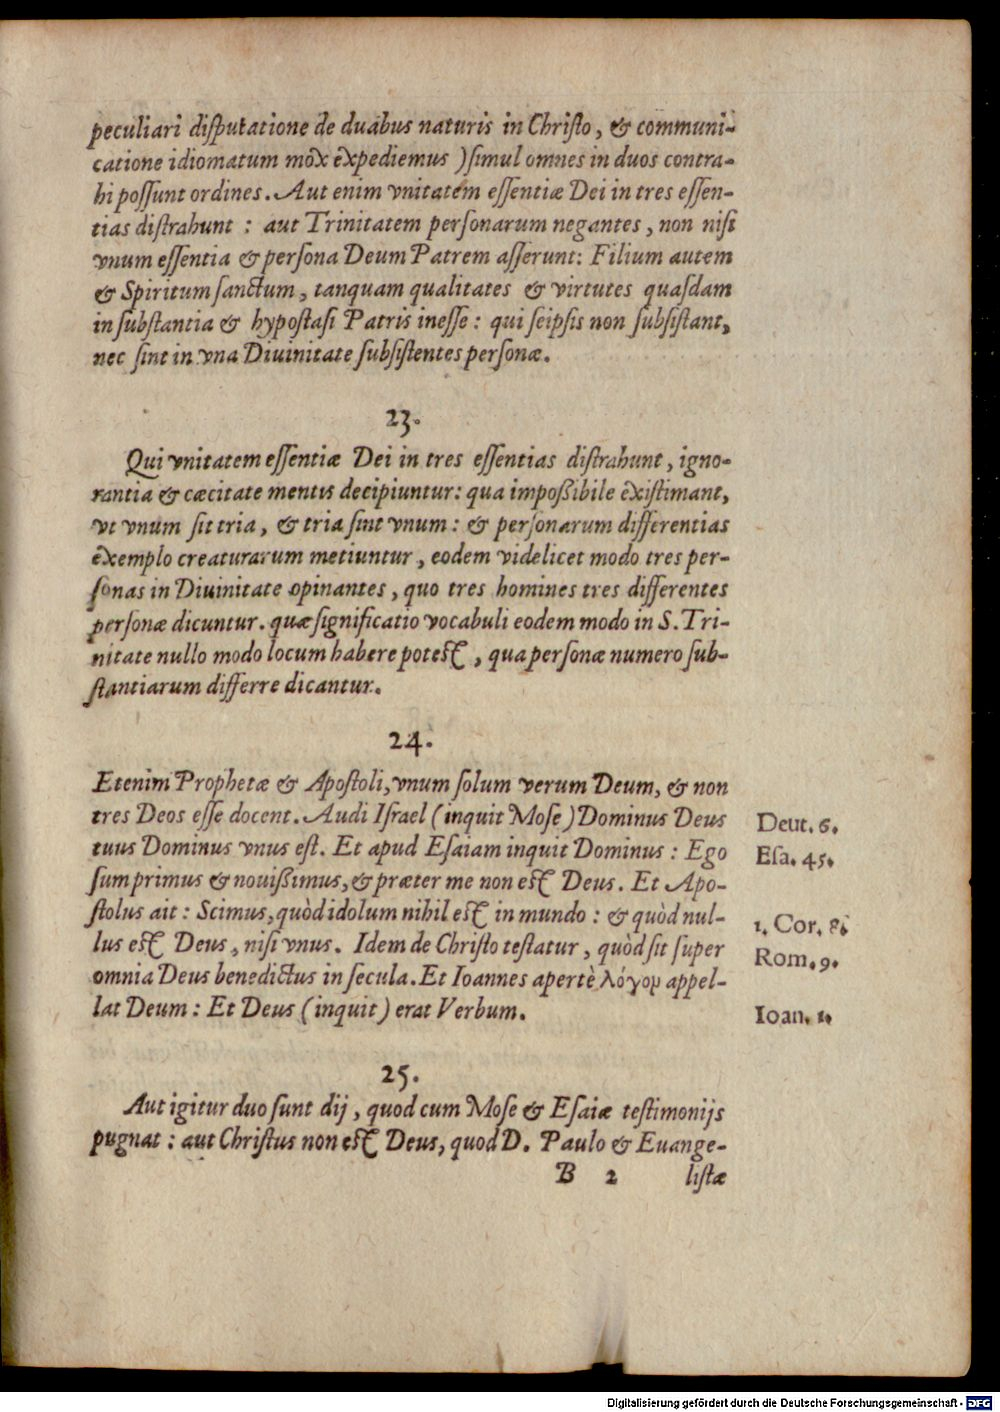 peculiari disputatione de duabus naturis in Christo, & communi-
catione idiomatum mox expediemus) simul omnes in duos contra-
hi possunt ordines. Aut enim vnitatem essentiæ Dei in tres essen-
tias distrahunt : aut Trinitatem personarum negantes, non nisi
vnum essentia & persona Deum Patrem asserunt: Filium autem
& Spiritum sanctum, tanquam qualitates & virtutes quasdam
in substantia & hypostasi Patris inesse: qui seipsis non subsistant,
nec sint in vna Diuinitate subsistentes personæ.
23.
Qui vnitatem essentiæ Dei in tres essentias distrahunt, igno-
rantia & cæcitate mentis decipiuntur: qua impoßibile existimant,
vt vnum sit tria, & tria sint vnum: & personarum differentias
exemplo creaturarum metiuntur, eodem videlicet modo tres per-
sonas in Diuinitate opinantes, quo tres homines tres differentes
personæ dicuntur. quæ significatio vocabuli eodem modo in S. Tri-
nitate nullo modo locum habere potest, qua personæ numero sub-
stantiarum differre dicantur.
24.
Etenim Prophetæ & Apostoli, vnum solum verum Deum, & non
tres Deos esse docent. Audi Israel (inquit Mose) Dominus Deus
Deut. 6.
tuus Dominus vnus est. Et apud Esaiam inquit Dominus: Ego
Esa. 45.
sum primus & nouißimus, & præter me non est Deus. Et Apo-
stolus ait: Scimus, quòd idolum nihil est in mundo: & quòd nul-
1. Cor. 8.
lus est Deus, nisi vnus. Idem de Christo testatur, quòd sit super
Rom. 9.
omnia Deus benedictus in secula. Et Ioannes apertè λόγον appel-
lat Deum: Et Deus (inquit) erat Verbum.
Ioan. 1.
25.
Aut igitur duo sunt dij, quod cum Mose & Esaiæ testimonijs
pugnat: aut Christus non est Deus, quod D. Paulo & Euange-
B 2 listæ
Digitalisierung gefördert durch die Deutsche Forschungsgemeinschaft - DFG